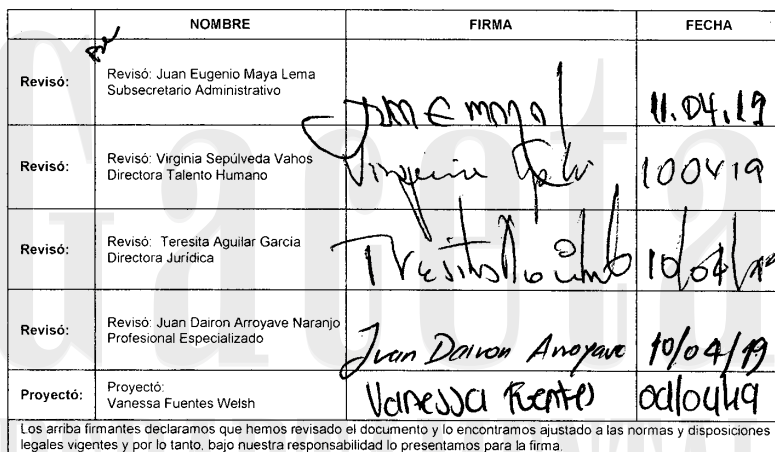 NOMBRE FIRMA FECHA
Revisó: Revisó: Juan Eugenio Maya Lema
Subsecretario Administrativo
Juan E maya 11.04.19
Revisó: Revisó: Virginia Sepúlveda Vahos
Directora Talento Humano
Virginia 100419
Revisó: Revisó: Teresita Aguilar García
Directora Jurídica
Teresita 10/04/
Revisó: Revisó: Juan Dairon Arroyave Naranjo
Profesional Especializado
Juan Dairon Arroyave 10/04/19
Proyectó: Proyectó:
Vanessa Fuentes Welsh
Vanessa Fuentes
Los arriba firmantes declaramos que hemos revisado el documento y lo encontramos ajustado a las normas y disposiciones
legales vigentes y por lo tanto, bajo nuestra responsabilidad lo presentamos para la firma.
Gaceta